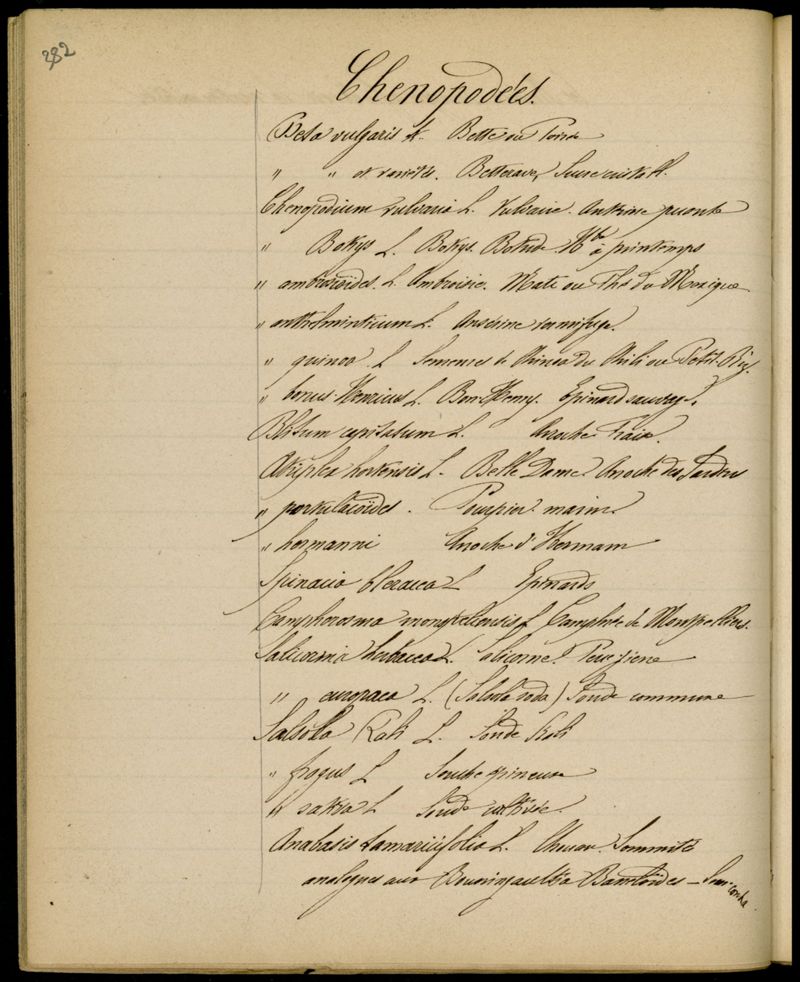 282
Chenopodées.
Beta vulgaris L. Bette ou Poirée
" " et variétés. Betterave, Sucre
Chenopodium vulvaria L. Vulvaire. Anserine puante
" Botrys L. Botrys. Botride. Hbe à printemps
" ambrosioïdes. L. Ambroisie. Mate ou Thé du Mexique
" anthelminticum L. Anserine vermifuge.
" quinoa. L. Semences de Quinoa du Chili ou Petit-Riz.
" bonus Henricus L. Bon Henry. Epinard sauvage.
Blitum capitatum L. Arroche Fraise.
Atriplex hortensis L. Belle Dame. Arroche des Jardins
" portulacoïdes. Pourpier marin.
" hermanni Arroche d'Hermann
Spinacia oleracea L. Epinards
Camphorosma monspeliensis L. Camphrée de Montpelliers.
Salicornia herbacea L. Salicorne.
" europaea L. (Salsola soda) Soude commune
Salsola Kali L. Soude Kali
" tragus L. Soude épineuse
" sativa L. Soude cultivée.
Anabasis tamariscifolia L. Chouan. Sommités
analogues aux Boussingaultia Baselloïdes –